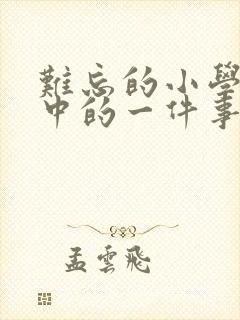 難忘的小學
中的一件事
孟雲飛